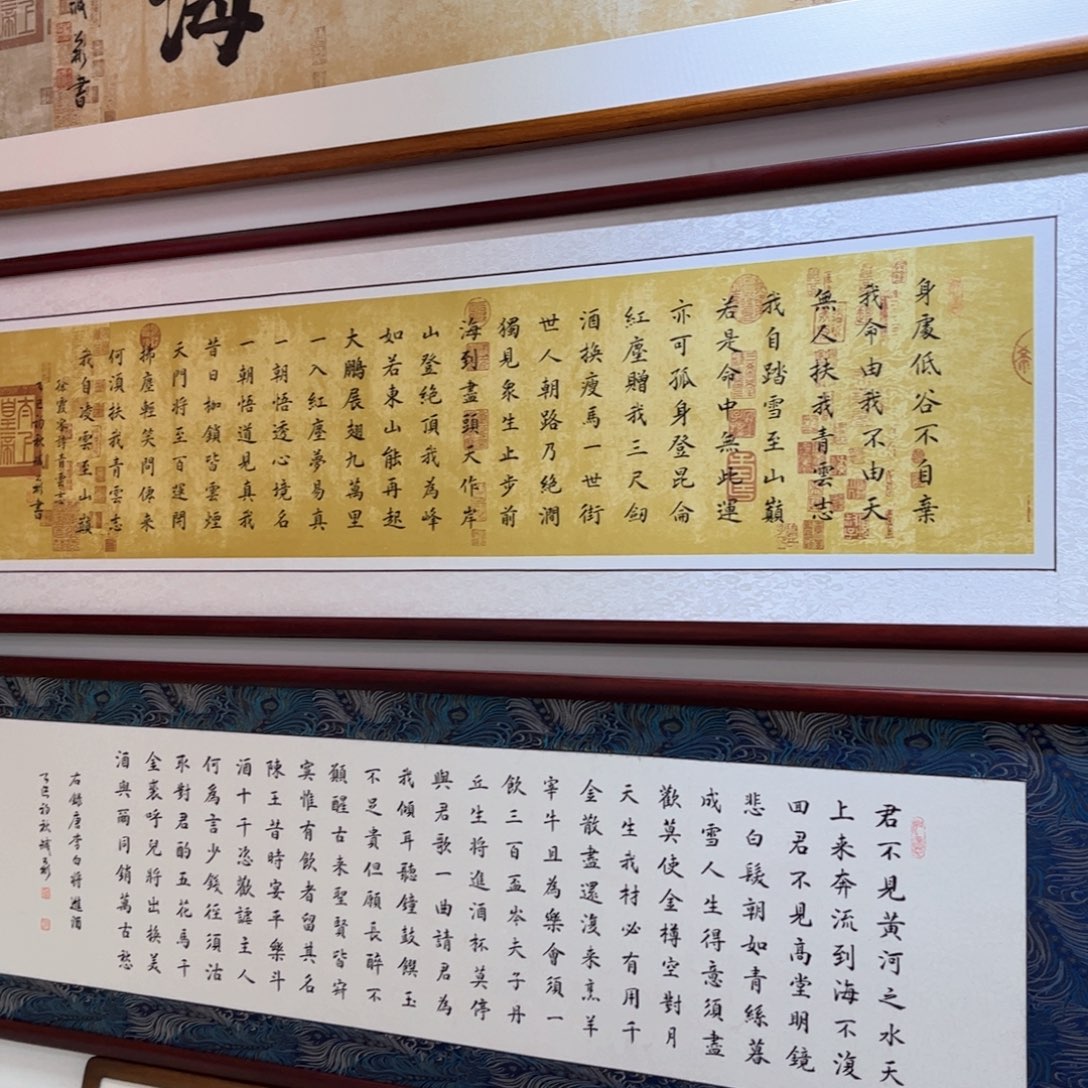 海
書
身處低谷不自棄
我命由我不由天
無人扶我青雲志
我自踏雪至山巔
若是命中無此運
亦可孤身登昆侖
紅塵贈我三尺劍
酒換瘦馬一世街
世人朝路乃絕澗
獨見眾生止步前
海到盡頭天作岸
山登絕頂我為峰
如若東山能再起
大鵬展翅九萬里
一入紅塵夢易真
一朝悟透心境名
一朝悟道見真我
昔日枷鎖皆雲煙
天門將至百運開
拂塵輕笑問傳來
何須扶我青雲志
我自凌雲至山巔
徐霞客詩青雲志
乙巳初秋 書
君不見黃河之水天
上來奔流到海不復
回君不見高堂明鏡
悲白髮朝如青絲暮
成雪人生得意須盡
歡莫使金樽空對月
天生我材必有用千
金散盡還復來烹羊
宰牛且為樂會須一
飲三百盃岑夫子丹
丘生將進酒杯莫停
與君歌一曲請君為
我傾耳聽鐘鼓饌玉
不足貴但願長醉不
願醒古來聖賢皆寂
寞惟有飲者留其名
陳王昔時宴平樂斗
酒十千恣歡謔主人
何為言少錢徑須沽
取對君酌五花馬千
金裘呼兒將出換美
酒與爾同銷萬古愁
右錄唐李白將進酒
乙巳初秋